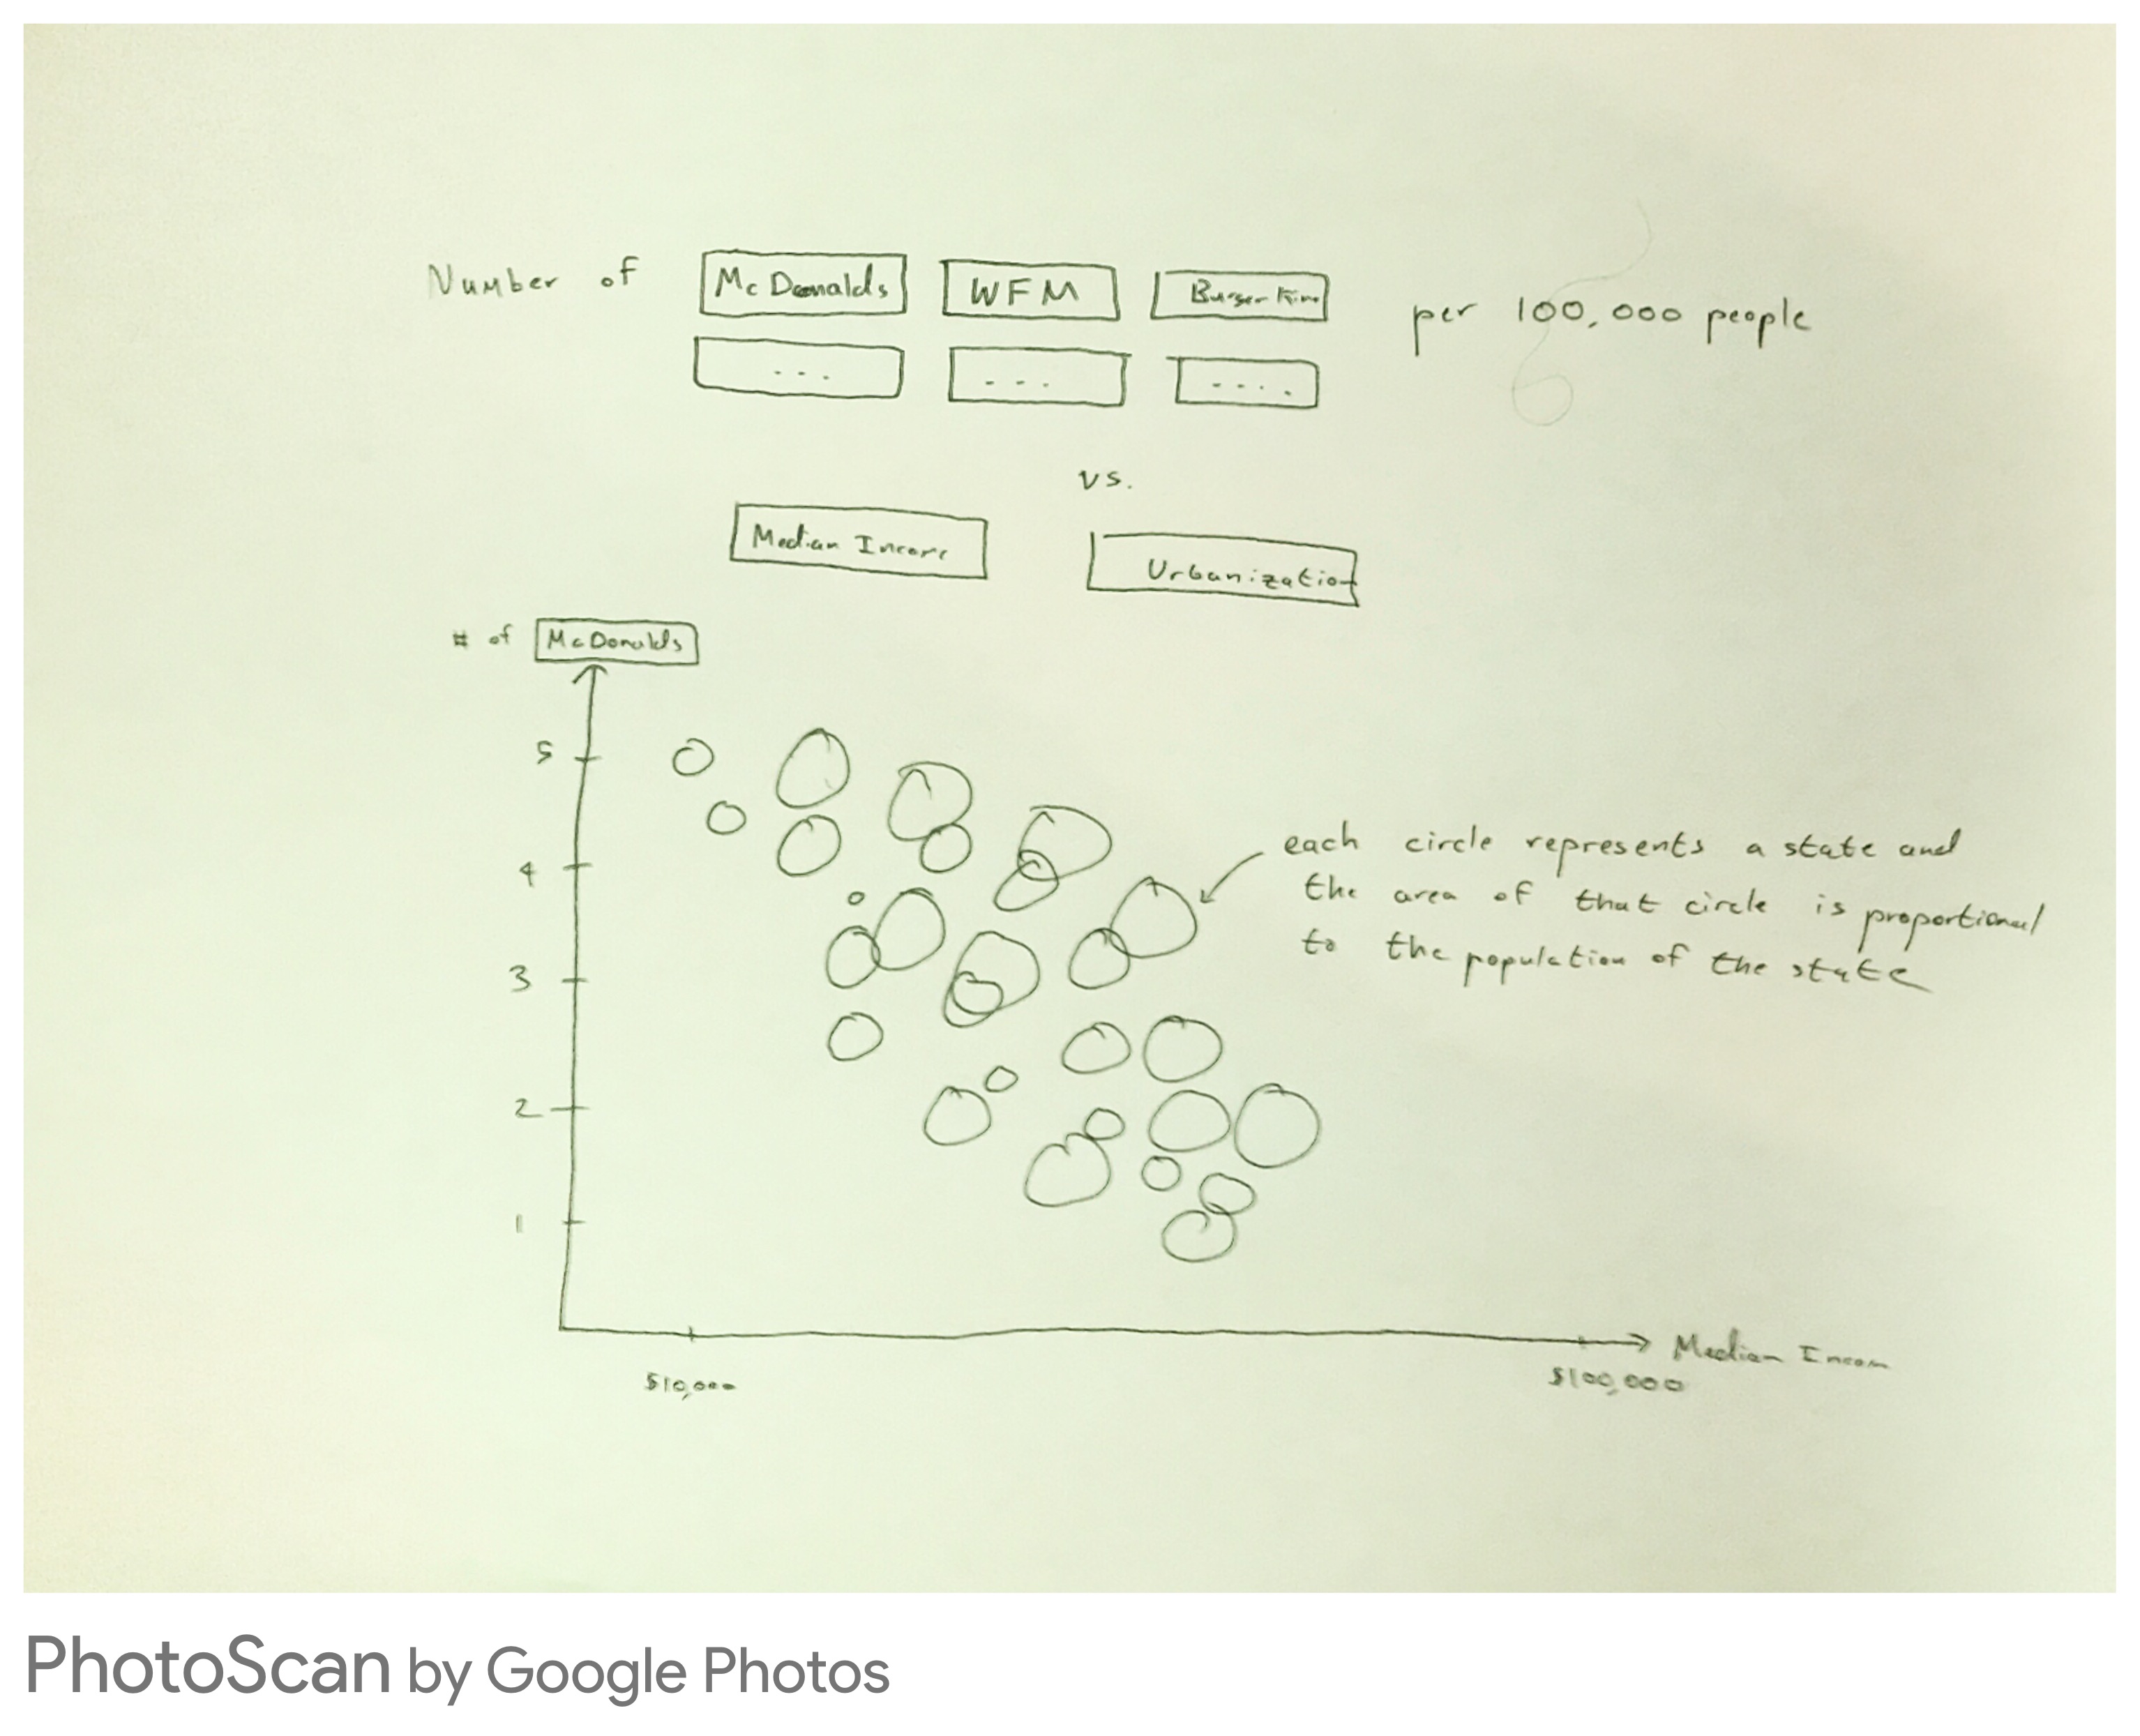 Number of McDonalds WFM Burger King per 100,000 people
... ... ....
vs.
Median Income Urbanization
# of McDonalds
5
4
3
2
1
each circle represents a state and
the area of that circle is proportional
to the population of the state
Median Incom
$10,000 $100,000
PhotoScan by Google Photos